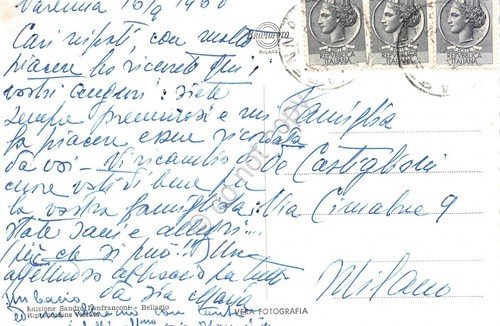 Varenna 16/9 1960
Cari nipoti, con molto
piacere ho ricevuto qui i
vostri auguri: siete
sempre premurosi e mi
fa piacere essere ricordata
da voi - Vi ricambio di
cuore voti di bene per
la vostra famiglia:
state sani e allegri...
più che si può!! Un
affettuoso abbraccio da tutti
un bacio da zia Maria
Famiglia
Castiglioni
Via Cimabue 9
Milano
MILANO
REPUBBLICA ITALIANA
REPUBBLICA ITALIANA
REPUBBLICA ITALIANA
do not copy
Edizione Sandro Gianfranconi - Bellagio
Riproduzione Vietata
VERA FOTOGRAFIA